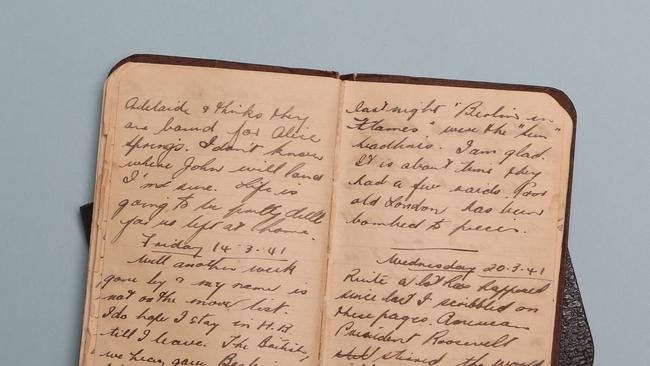 Adelaide & thinks they
are bound for Alice
Springs. I don't know
where John will land
I'm sure. Life is
going to be pretty dull
for us left at home.
Friday 14.3.41
Well another week
gone by & my name is
not on the move list.
I do hope I stay in H.B
till I leave. The British,
we hear, gave Berlin
last night "Berlin in
Flames" were the "Sun"
headlines. I am glad.
It is about time they
had a few raids. Poor
old London has been
bombed to pieces.
Wednesday 20.3.41
Quite a lot has happened
since last I scribbled on
these pages. American
President Roosevelt
stirred the world